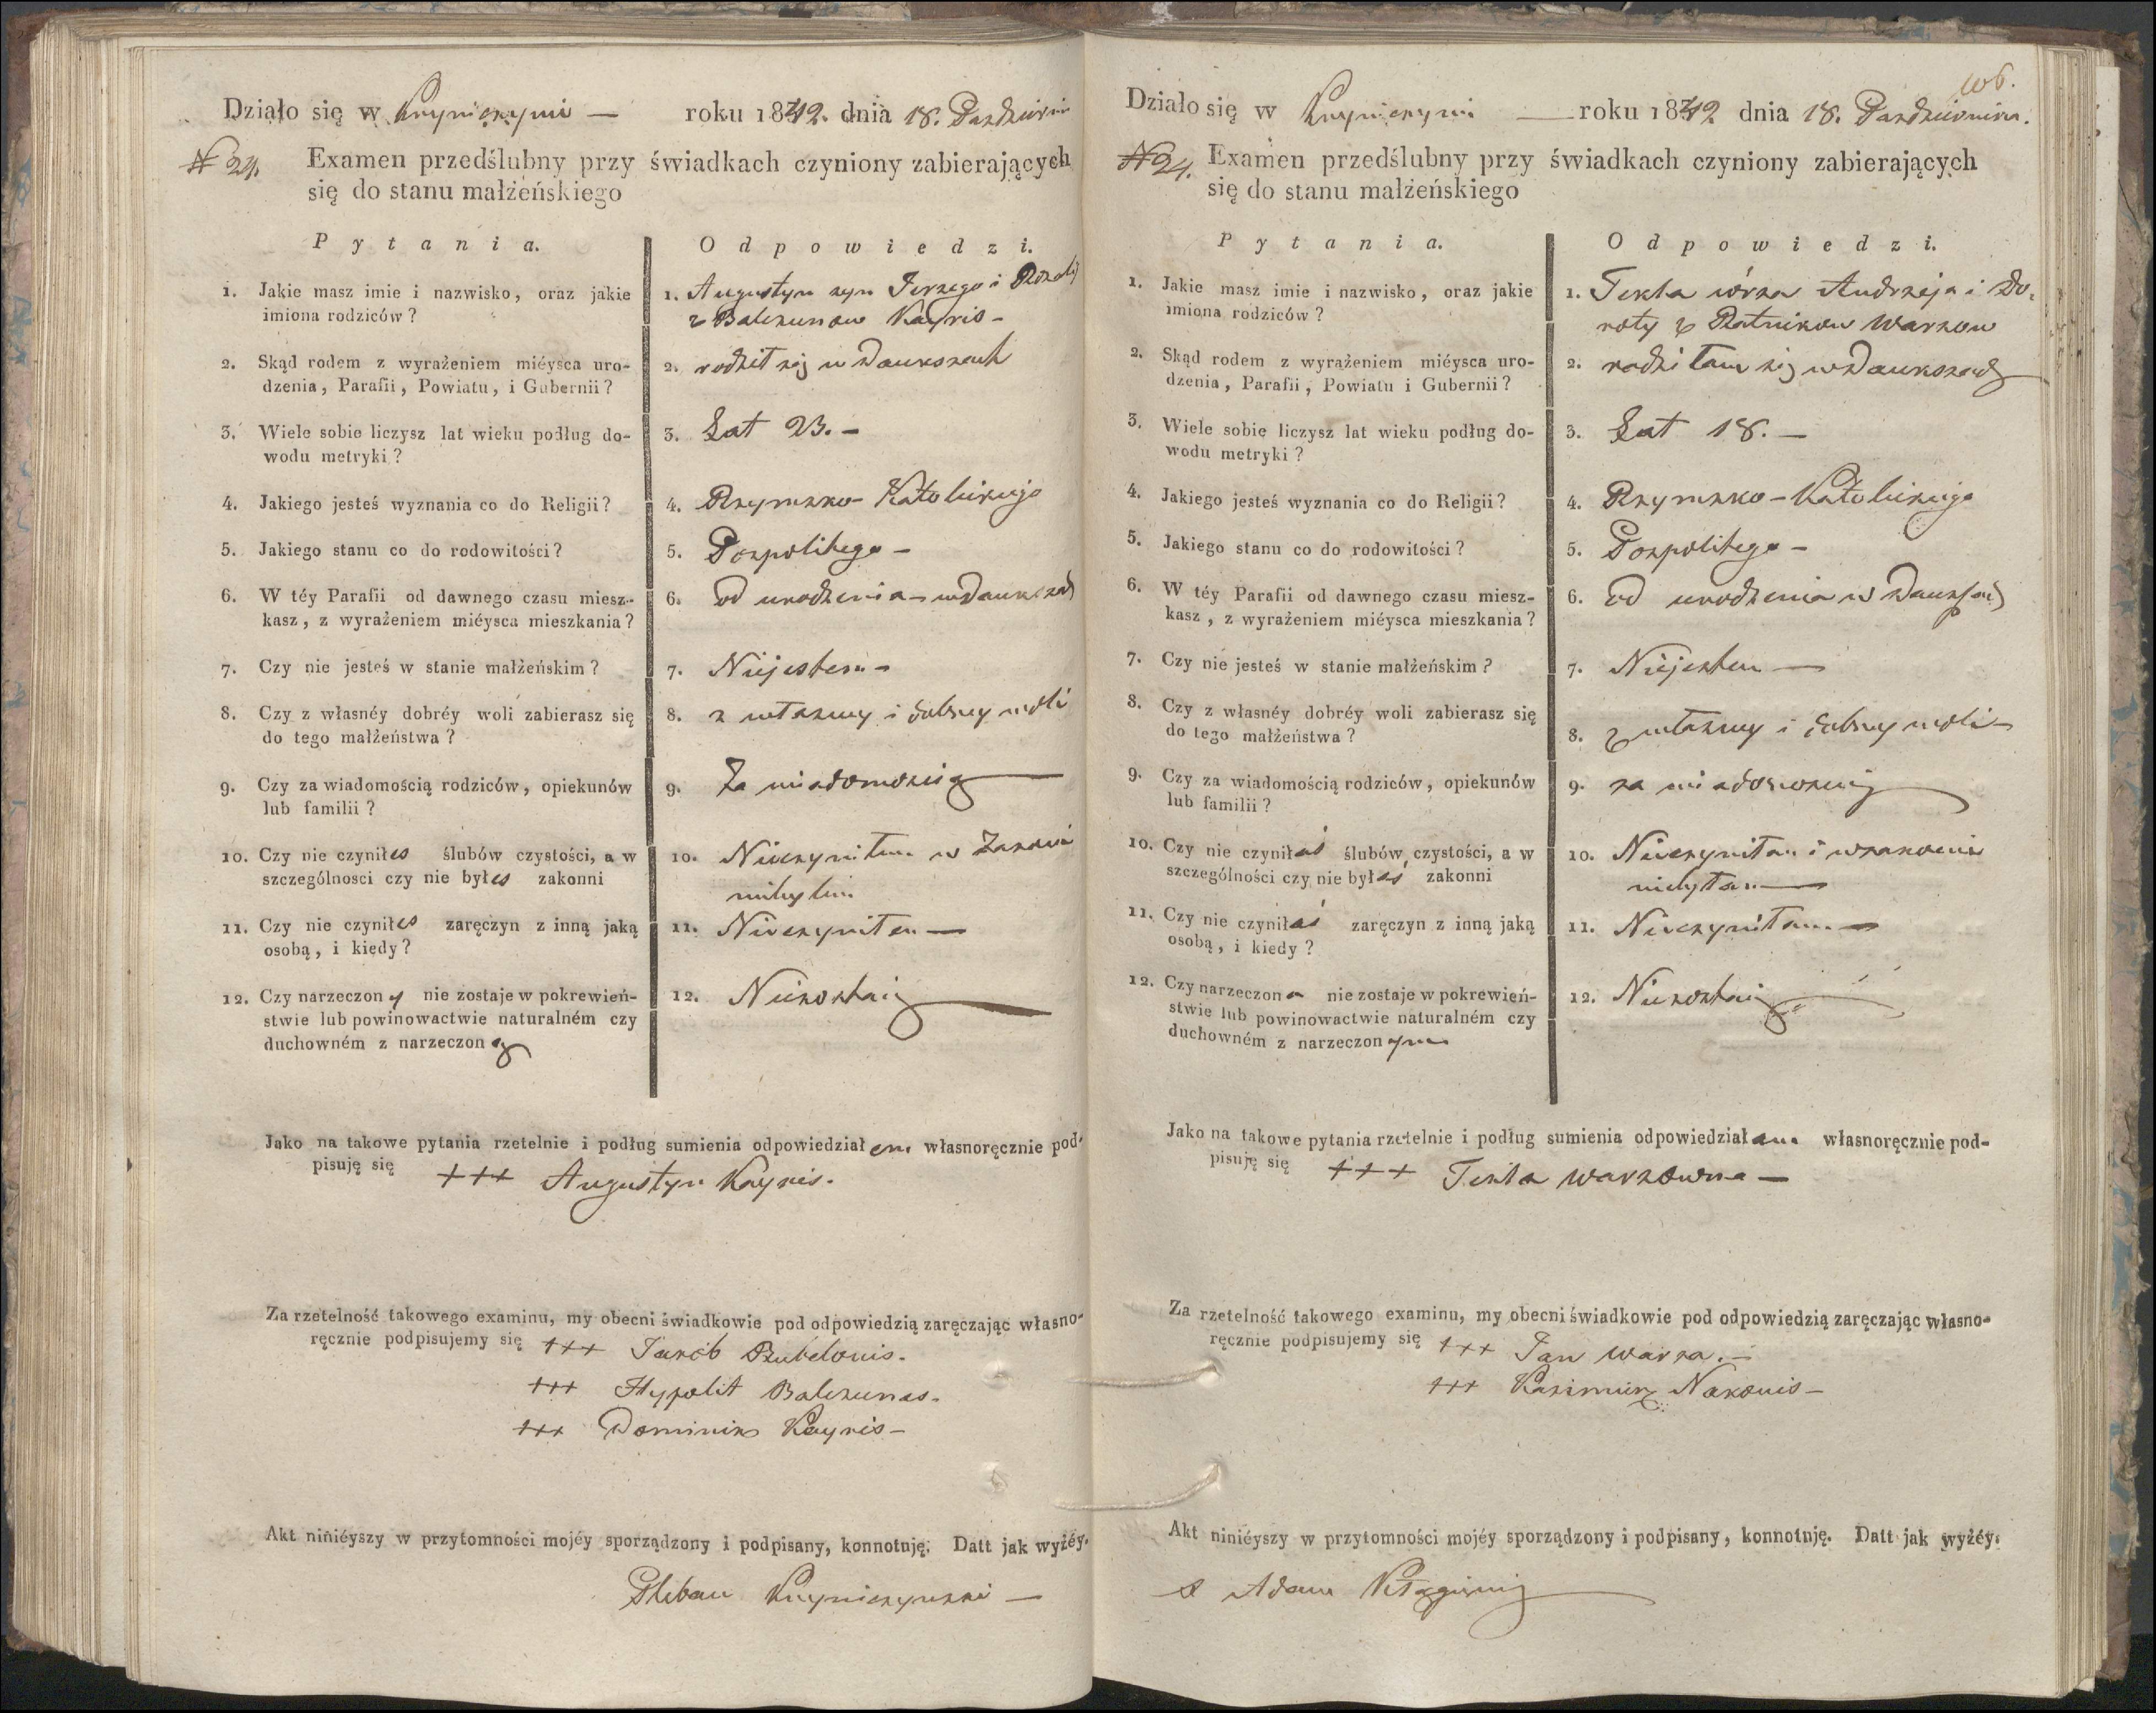 Działo się w Krynicznie — roku 1842. dnia 18. Październ
N 24. Examen przedślubny przy świadkach czyniony zabierających
się do stanu małżeńskiego
Pytania. Odpowiedzi.
1. Jakie masz imie i nazwisko, oraz jakie
imiona rodziców?
1. Augustyn syn Jerzego i Rozalij
z Balczunow Kayris -
2. Skąd rodem z wyrażeniem mieysca uro-
dzenia, Parafii, Powiatu, i Gubernii?
2. rodził się w Daukszach
3. Wiele sobie liczysz lat wieku podług do-
wodu metryki?
3. Lat 23. -
4. Jakiego jesteś wyznania co do Religii?
4. Rzymsko Katolickiego
5. Jakiego stanu co do rodowitości?
5. Pospolitego -
6. W téy Parafii od dawnego czasu miesz-
kasz, z wyrażeniem miéysca mieszkania?
6. od urodzenia w Daukszach
7. Czy nie jesteś w stanie małżeńskim?
7. Niejestem -
8. Czy z własnéy dobréy woli zabierasz się
do tego małżeństwa?
8. z własney i dobrey woli
9. Czy za wiadomością rodziców, opiekunów
lub familii?
9. Za wiadomoscią
10. Czy nie czyniłes ślubów czystości, a w
szczególnosci czy nie byłes zakonni
10. Nieczyniłem w Zakonie
niebyłem
11. Czy nie czyniłes zaręczyn z inną jaką
osobą, i kiedy?
11. Nieczyniłem —
12. Czy narzeczony nie zostaje w pokrewień-
stwie lub powinowactwie naturalném czy
duchowném z narzeczoną
12. Niezostaię
Jako na takowe pytania rzetelnie i podług sumienia odpowiedziałem własnoręcznie pod-
pisuję się +++ Augustyn Kayris.
Za rzetelność takowego examinu, my obecni świadkowie pod odpowiedzią zaręczając własno-
ręcznie podpisujemy się +++ Jakób Rubelowis.
+++ Hypolit Balczunas.
+++ Dominik Kayris -
Akt niniéyszy w przytomności mojéy sporządzony i podpisany, konnotuję. Datt jak wyżéy.
Pleban
Działo się w — roku 1842 dnia 18. Pazdziernika.
N 24. Examen przedślubny przy świadkach czyniony zabierających
się do stanu małżeńskiego
Pytania. Odpowiedzi.
1. Jakie masz imie i nazwisko, oraz jakie
imiona rodziców?
1. Tekla córka Andrzeja i Do-
roty z Ratnikow Warzow
2. Skąd rodem z wyrażeniem miéysca uro-
dzenia, Parafii, Powiatu i Gubernii?
2. rodziłam się w Daukszach
3. Wiele sobie liczysz lat wieku podług do-
wodu metryki?
3. Lat 18. -
4. Jakiego jesteś wyznania co do Religii?
4. Rzymsko-Katolickiego
5. Jakiego stanu co do rodowitości?
5. Pospolitego -
6. W téy Parafii od dawnego czasu miesz-
kasz, z wyrażeniem miéysca mieszkania?
6. Od urodzenia w Daukszach
7. Czy nie jesteś w stanie małżeńskim?
7. Niejestem —
8. Czy z własnéy dobréy woli zabierasz się
do tego małżeństwa?
8. z własney i dobrey woli
9. Czy za wiadomością rodziców, opiekunów
lub familii?
9. za wiadomoscią
10. Czy nie czyniłaś ślubów czystości, a w
szczególności czy nie byłaś zakonni
10. Nieczyniłam i w zakonie
niebyłam —
11. Czy nie czyniłaś zaręczyn z inną jaką
osobą, i kiedy?
11. Nieczyniłam —
12. Czy narzeczona nie zostaje w pokrewień-
stwie lub powinowactwie naturalném czy
duchowném z narzeczonym
12. Niezostaię
Jako na takowe pytania rzetelnie i podług sumienia odpowiedziałam własnoręcznie pod-
pisuję się +++ Tekla Warzowna —
Za rzetelność takowego examinu, my obecni świadkowie pod odpowiedzią zaręczając własno-
ręcznie podpisujemy się +++ Jan Warza. -
+++ Kazimierz Nakowis -
Akt niniéyszy w przytomności mojéy sporządzony i podpisany, konnotuję. Datt jak wyżéy.
X Adam